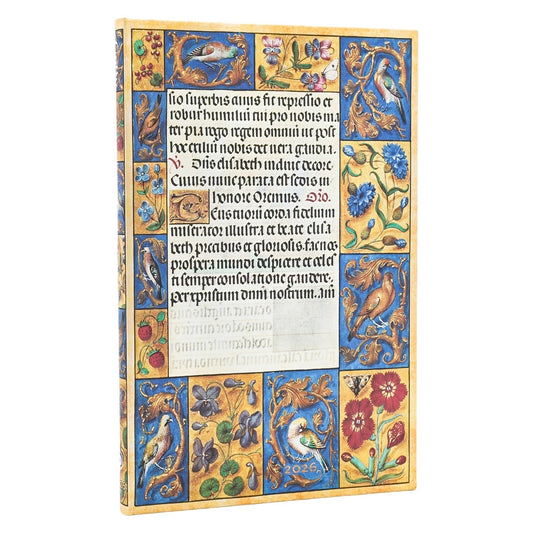 sio superbis cuius fit repressio et
robur humilium tui pro nobis ma
ter pia rogo regem omnium ut post
hoc exilium nobis det vera gaudia.
V. Diis elisabeth in diuc decore.
Cuius nunc parata est sedis in
honore Oremus. Oro.
Eus tuorum corda fidelium
miserator illustra et beate elisa
beth precibus et gloriosis. fac nos
prospera mundi despicere et celes
ti semper consolatione gaudere.
Per xpristum dnm nostrum. am
2026